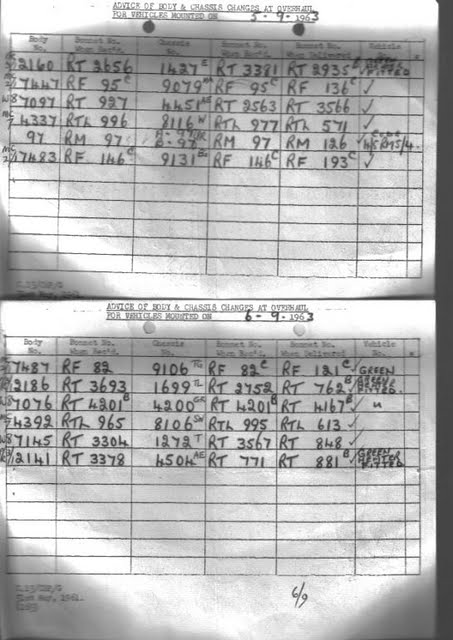 ADVICE OF BODY & CHASSIS CHANGES AT OVERHAUL
FOR VEHICLES MOUNTED ON 5-9-1963
Body No. Bonnet No. When Rec'd. Chassis No. Bonnet No. When Rec'd. Bonnet No. When Delivered Vehicle No.
2160 RT 2656 1427 E RT 3381 RT 2935 B FITTED
7447 RF 95 C 9079 RF 95 C RF 136 C ✓
W8 7097 RT 927 4451 AE RT 2563 RT 3566 ✓
4337 RTL 996 8116 W RTL 977 RTL 571 ✓
97 RM 97 A-97 B-97 RM 97 RM 126 ✓
7483 RF 146 C 9131 RF 146 C RF 193 C ✓
ADVICE OF BODY & CHASSIS CHANGES AT OVERHAUL
FOR VEHICLES MOUNTED ON 6-9-1963
Body No. Bonnet No. When Rec'd. Chassis No. Bonnet No. When Rec'd. Bonnet No. When Delivered Vehicle No.
7487 RF 82 9106 RF 82 C RF 121 C ✓ GREEN
2186 RT 3693 1699 TL RT 2752 RT 762 B ✓ GREEN HEATER FITTED
7076 RT 4201 B 4200 GR RT 4201 B RT 4167 B ✓ "
4392 RTL 965 8106 SW RTL 995 RTL 613 ✓
W8 7145 RT 3304 1272 T RT 3567 RT 848 ✓
2141 RT 3378 4504 AE RT 771 RT 881 B ✓ GREEN HEATER FITTED
31st May, 1961.
6/9